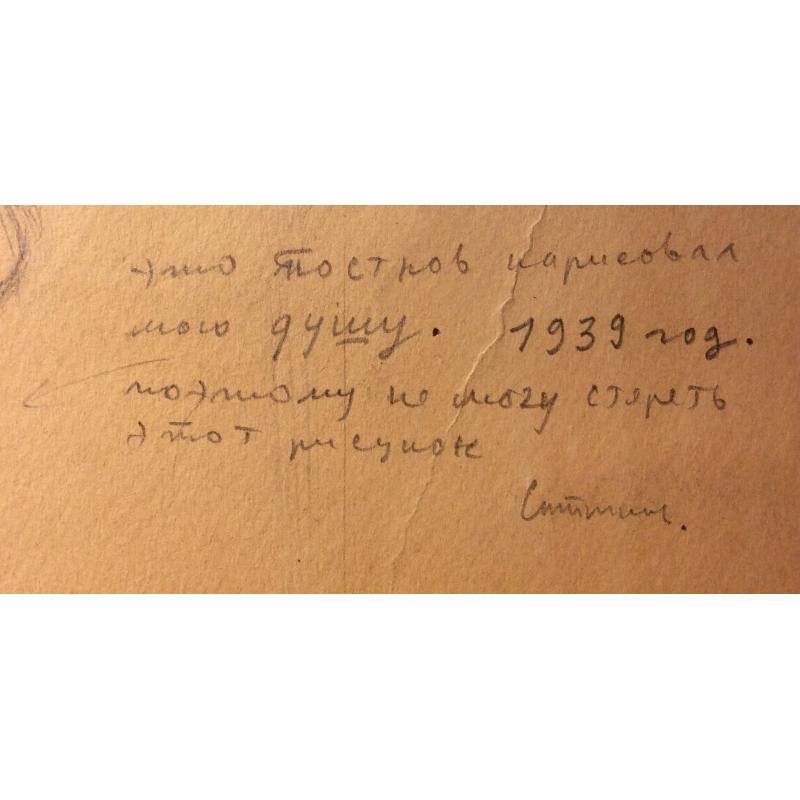 это Костров нарисовал
мою душу. 1939 год.
поэтому не могу стереть
этот рисунок